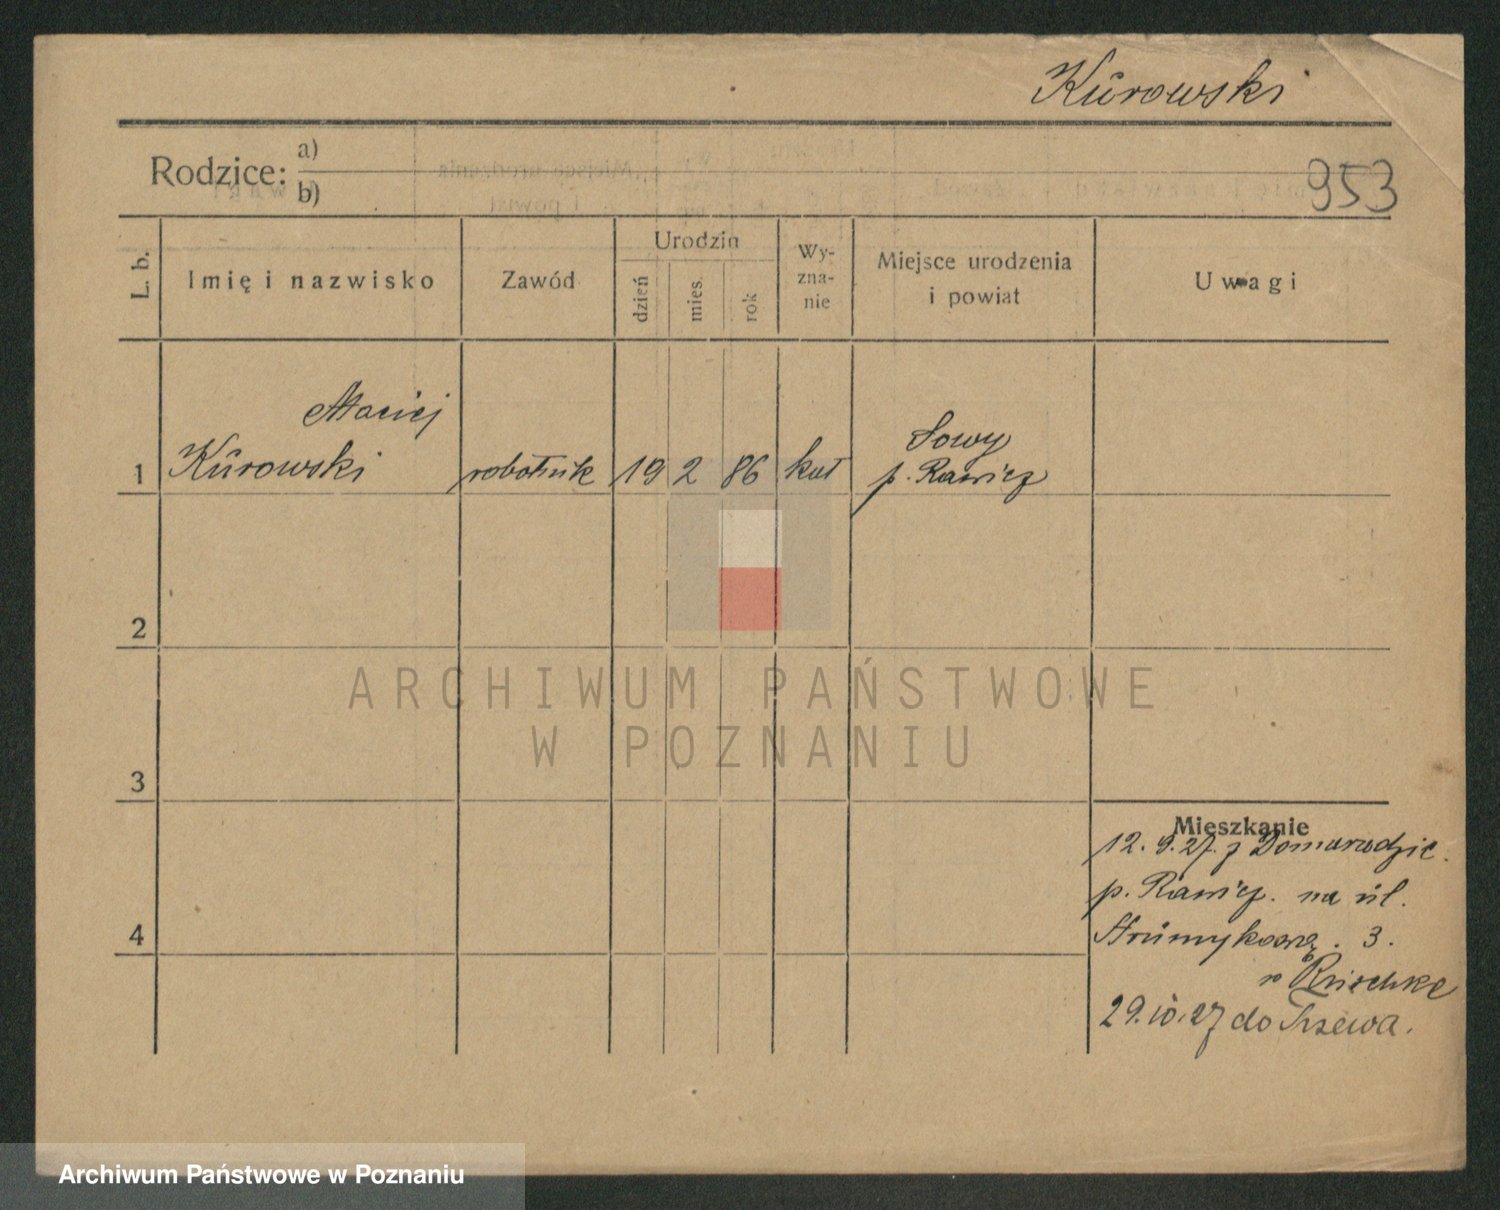 Kŭrowski
Rodzice: a)
b)
953
L. b.
Imię i nazwisko
Zawód
Urodzin
dzień
mies.
rok
Wy-
zna-
nie
Miejsce urodzenia
i powiat
Uwagi
Maciej
1 Kŭrowski robotnik 19 2 86 kat
Sowy
p. Rawicz
2
3
4
Mieszkanie
12.9.27. z Domaradzic.
p. Rawicz. na ŭl.
Strŭmykową. 3.
29.10.27 do
ARCHIWUM PAŃSTWOWE
W POZNANIU
Archiwum Państwowe w Poznaniu